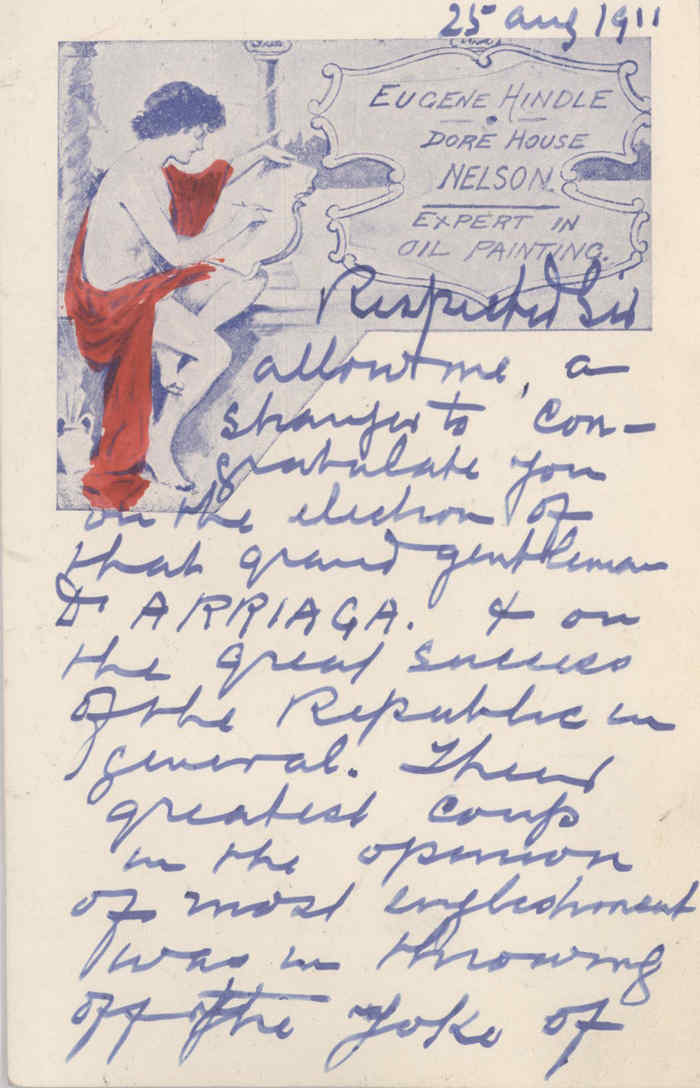 25 Aug 1911
EUGENE HINDLE
DORÉ HOUSE
NELSON.
EXPERT IN
OIL PAINTING.
Respected Sir
allow me, a
stranger to con-
gratulate you
on the election of
that grand gentleman
Dr ARRIAGA. & on
the great success
of the Republic in
general. Their
greatest coup
in the opinion
of most
was in throwing
off the yoke of